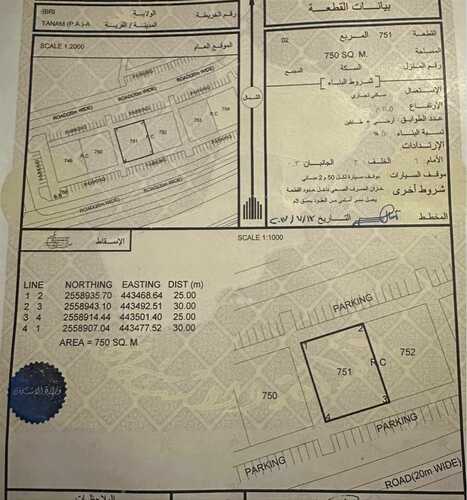 بيانات القطعة
القطعة 751 المربع 02
المساحة 750 SQ. M.
رقم المنزل السكة المجمع
الشروط البناء
الإستعمال سكني تجاري
الأرتفاع
عدد الطوابق أرضي + طابقين
نسبة البناء
الإرتدادات
الأمام الخلف الجانبان
موقف السيارات موقف سيارة لكل 50 م 2 مباني
شروط أخرى
المخطط التاريخ
الولاية IBRI
المدينة / القرية TANAM (P.A)-A
رقم الخريطة
SCALE 1:2000 الموقع العام
PARKING
ROAD(20m WIDE)
PARKING
749
750
751
R C
752
753
754
PARKING
ROAD(20m WIDE)
الشمال
الإسقاط
SCALE 1:1000
LINE NORTHING EASTING DIST (m)
1 2 2558935.70 443468.64 25.00
2 3 2558943.10 443492.51 30.00
3 4 2558914.44 443501.40 25.00
4 1 2558907.04 443477.52 30.00
AREA = 750 SQ. M.
PARKING
PARKING
1
2
752
R C
751
750
3
4
PARKING
PARKING
ROAD(20m WIDE)
الملاحظات